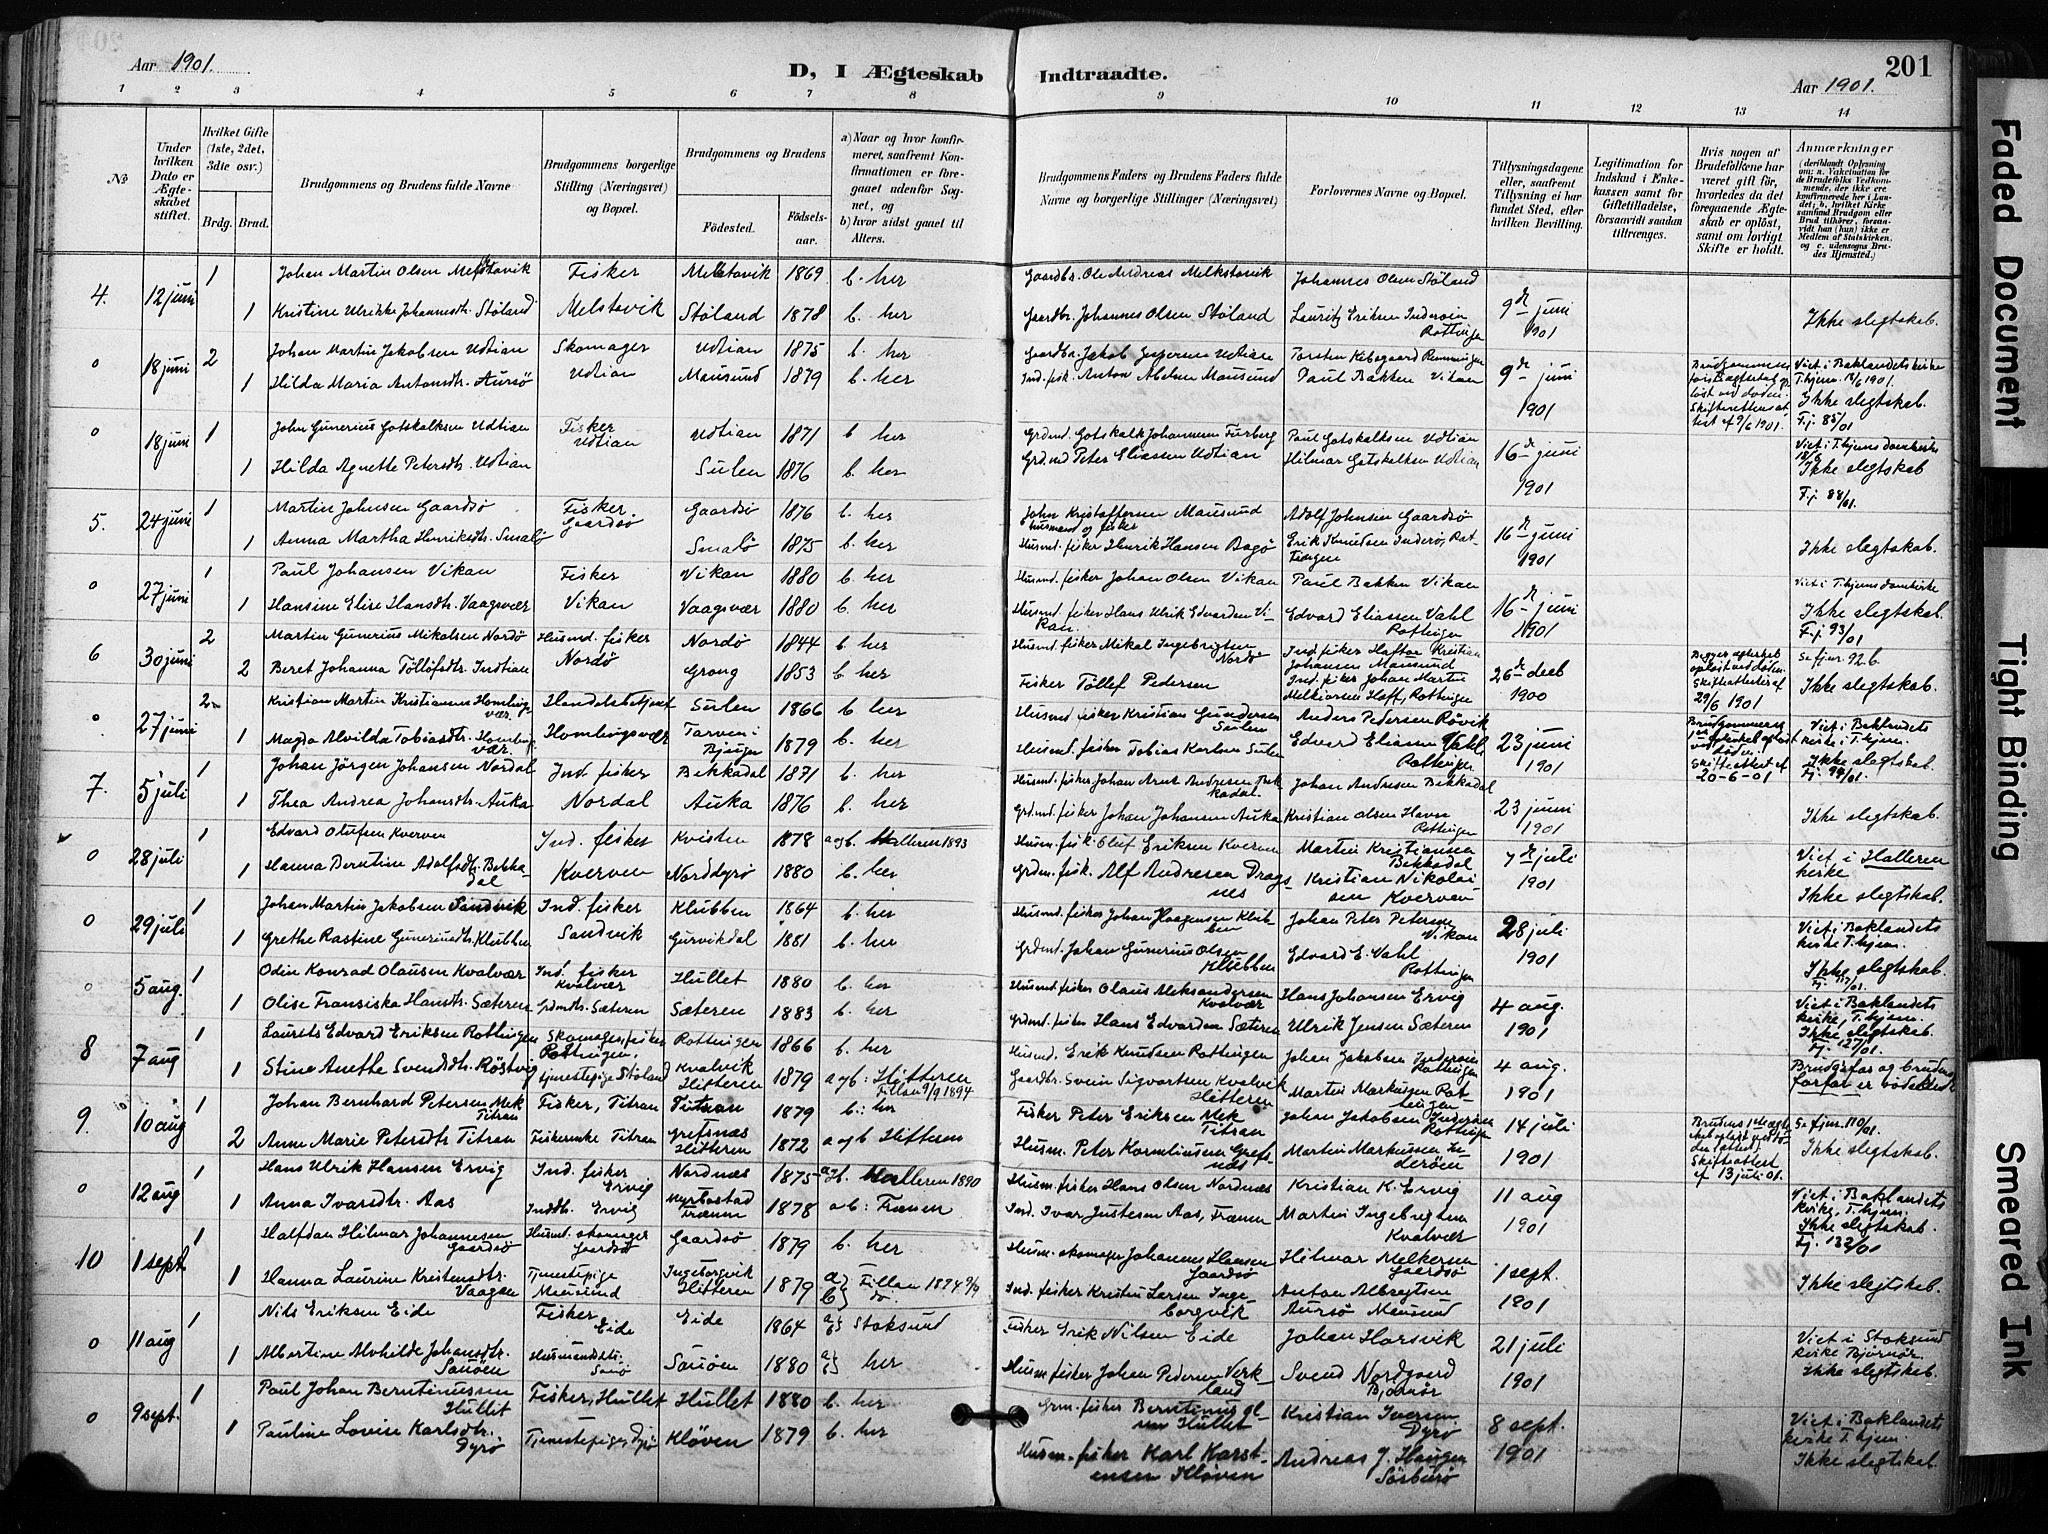 Aar 1901.
D, I Ægteskab Indtraadte.
Aar 1901.
201
1 2 3 4 5 6 7 8 9 10 11 12 13 14
№
Under hvilken Dato er Ægteskabet stiftet.
Hvilket Gifte (1ste, 2det, 3die osv.)
Brdg. Brud.
Brudgommens og Brudens fulde Navne
Brudgommens borgerlige Stilling (Næringsvei) og Bopæl.
Brudgommens og Brudens
Fødested. Fødselsaar.
a) Naar og hvor konfirmeret, saafremt Konfirmationen er foregaaet udenfor Sognet, og
b) hvor sidst gaaet til Alters.
Brudgommens Faders og Brudens Faders fulde Navne og borgerlige Stillinger (Næringsvei)
Forlovernes Navne og Bopæl.
Tillysningsdagene eller, saafremt Tillysning ei har fundet Sted, efter hvilken Bevilling.
Legitimation for Indskud i Enkekassen samt for Giftetilladelse, forsaavidt saadan tiltrænges.
Hvis nogen af Brudefolkene har været gift før, hvorledes da det foregaaende Ægteskab er opløst, samt om lovligt Skifte er holdt.
Anmærkninger
(deriblandt Oplysning om: a. Vaccination for de Brudefolks Vedkommende, der ikke ere konfirmerede her i Landet; b. hvilket Kirkesamfund Brudgom eller Brud tilhører, forsaavidt han (hun) ikke er Medlem af Statskirken, og c. udensogns Brudes Hjemsted.)
4. 12 juni 1 Johan Martin Olsen Melkstavik Fisker Melkstavik 1869 b. her Gaardbr. Ole Andreas Melkstavik Johannes Olsen Støland
1 Kristine Ulrikke Johannesdtr. Støland Melstavik Støland 1878 b. her Gaardbr. Johannes Olsen Støland Lauritz Eriksen Inderøien Rottingen 9de juni 1901 Ikke slegtskab.
0 18 juni 2 Johan Martin Jakobsen Udtian Skomager Udtian 1875 b. her Gaardbr. Jakob Jespersen Udtian
1 Hilda Maria Antonsdtr. Aursø Udtian Mausund 1879 b. her Ind. fisk. Anton Albelsen Mausund Paul Bakken Vikan 9de juni 1901 Viet i Baklandets kirke T.hjem 18/6 1901. Ikke slegtskab. Fj. 85/01
0 18 juni 1 John Gunerius Gotskalksen Udtian Fisker Udtian Udtian 1871 b. her Grdmd. Gotskalk Johannesen Furberg Paul Gotskalksen Udtian
1 Hilda Agnette Petersdtr. Udtian Sulen 1876 b. her Grd.md Peter Eliassen Udtian Hilmar Gotskalksen Udtian 16de juni 1901 Viet i T.hjems domkirke 18/6 Ikke slegtskab Fj. 88/01.
5. 24 juni 1 Martin Johnsen Gaardsø Fisker Gaardsø Gaardsø 1876 b. her John Kristoffersen Mausund husmand og fisker Adolf Johnsen Gaardsø
1 Anna Martha Henriksdtr. Smalø Smalø 1875 b. her Husmd. fisker Henrik Hansen Bogø Erik Knudsen Inderø, Rottingen 16de juni 1901 Ikke slegtskab.
0 27 juni 1 Paul Johansen Vikan Fisker Vikan 1880 b. her Husmd. fisker Johan Olsen Vikan Paul Bakken Vikan
1 Hansine Elise Hansdtr. Vaagsvær Vikan Vaagsvær 1880 b. her Husmd. fisker Hans Ulrik Edvardsen Vikan. Edvard Eliassen Vahl Rottingen 16de juni 1901 Viet i T.hjems domkirke Ikke slegtskab. Fj. 93/01
6 30 juni 2 Martin Gunerius Mikalsen Nordø Husmd. fisker Nordø 1844 b. her Husmd. fisker Mikal Ingebrigtsen Nordø Ind. fisker Haftor Kristian Johansen Mausund
2 Beret Johanna Tøllefsdtr. Indtian Nordø Grong 1853 b. her Fisker Tøllef Pedersen Ind. fisker Johan Martin Melkiorsen Hoff, Rottingen 26de decb 1900 Begges egteskab opløst ved døden. Skifteattester af 29/6 1901 Se fjer. 92.b Ikke slegtskab.
0 27 juni 2 Kristian Martin Kristiansen Homlingsvær. Handelsbetjent Sulen 1866 b. her Husmd. fisker Kristian Gundersen Sulen Anders Pedersen Røvik
1 Magda Alvilda Tobiasdtr. Homlingsvær. Homlingsvær Tarven i Bjugn 1879 b. her Husmd. fisker Tobias Karlsen Sulen Edvard Eliassen Vahl Rottingen 23 juni 1901 20-6-01 Viet i Baklandets kirke i T.hjem. Ikke slegtskab. Fj. 94/01.
7. 5 juli 1 Johan Jørgen Johansen Nordal Ind. fisker Bekkadal 1871 b. her Husmd. fisker Johan Arnt Andresen Bekkadal. Johan Andresen Bekkadal
1 Thea Andrea Johansdtr. Auka Nordal Auka 1876 b. her Grdmd. fisker Johan Johansen Auka Kristian Olsen Havn Rottingen 23 juni 1901 Ikke slegtskab.
0 28 juli 1 Edvard Olufsen Kverven Ind. fisker Kvisten 1878 a og b. Halleren 1893 Husm. fisk. Oluf Eriksen Kverven Martin Kristiansen Bekkadal
1 Hanna Berntine Adolfsdtr. Bekkadal Kverven Norddyrø 1880 b. her Grdm. fisk. Alf Andresen Dragsnes Kristian Nikolaisen Kverven 7de juli 1901 Viet i Halleren kirke Ikke slegtskab.
0 29 juli 1 Johan Martin Jakobsen Sandvik Ind. fisker Klubben 1864 b. her Husmd. fisker Johan Haagensen Klubben Johan Peter Petersen Vikan
1 Grethe Rastine Guneriusdtr. Klubben Sandvik Gurvikdal 1881 b. her Grdmd. Johan Gunerius Olsen Klubben Edvard E. Vahl Rottingen 28 juli 1901 Viet i Baklandets kirke T.hjem. Ikke slegtskab.
0 5 aug. 1 Odin Konrad Olausen Kvalvær Ind. fisker Kvalvær Hullet 1880 b. her Husmd. fisker Olaus Aleksandersen Kvalvær Hans Johansen Ervig
1 Olise Fransiska Hansdtr. Sæteren Grdmdtr. Sæteren Sæteren 1883 b. her Grdmd. fisker Hans Edvardsen Sæteren Ulrik Jensen Sæteren 4 aug. 1901 Viet i Baklandets kirke, T.hjem. Ikke slegtskab. Fj. 127/01.
8 7 aug 1 Laurits Edvard Eriksen Rottingen Skomager, fisker Rottingen. Rottingen 1866 b. her Husmd. Erik Knudsen Rottingen Johan Jakobsen Inderøien Rottingen
1 Stine Anette Svendsdtr. Røstvig tjenestepige Støland Kvalvik Hitteren 1879 a og b: Hitteren Fillan 9/9 1894 Gaardbr. Svein Sigvartsen Kvalvik Hitteren Martin Markusen Rottingen 4 aug. 1901
9. 10 aug 1 Johan Bernhard Petersen Mek Titran Fisker, Titran Titran 1879 b: her Fisker Peter Eriksen Mek Titran Johan Jakobsen Inderøien Rottingen
2 Anne Marie Petersdtr. Titran Fiskerenke Titran Grefsnæs Hitteren 1872 a og b Hitteren Husm. Peter Korneliussen Grefsnæs Martin Markussen Inderøen 14 juli 1901 Skifteattest af 13 juli 01. Se fjer. 110/01. Ikke slegtskab.
0 12 aug 1 Hans Ulrik Hansen Ervig Ind. fisker Ervig Nordnæs 1875 a og b. Halleren 1890 Husm. fisker Hans Olsen Nordnæs Kristian K. Ervig
1 Anna Ivarsdtr. Aas Inddtr. Ervig Myrbostad Frænen 1878 a b: Frænen Ind. Ivar Justesen Aas, Frænen Martin Ingebrigtsen Kvalvær 11 aug 1901 Viet i Baklandets kirke, T.hjem. Ikke slegtskab. Fj. 132/01
10 1 sept. 1 Halfdan Hilmar Johannesen Gaardsø Husmd. skomager Gaardsø Gaardsø 1879 b. her Husm. skomager Johannes Hansen Gaardsø Hilmar Melkersen Gaardsø
1 Hanna Laurine Kristensdtr. Vaagan Tjenestepige Mausund Ingeborgvik Hitteren 1879 a) Fillan 1894 9/9 b) do. Ind. fisker Kristen Larsen Ingeborgvik Anton Albregtsen Aursø Mausund 1 sept. 1901 Ikke slegtskab.
0 11 aug 1 Nils Eriksen Eide Fisker Eide Eide 1864 a b Stoksund Fisker Erik Nilsen Eide Johan Harsvik
1 Albertine Alvhilde Johansdtr. Sauøen Husmandsdtr. Sauø Sauøen 1880 a b her Husm. fisker Johan Pedersen Verkland Svend Nordgaard Bjørnør 21 juli 1901 Viet i Stoksund kirke Bjørnør. Ikke slegtskab
0 9 sept. 1 Paul Johan Berntinussen Hullet Fisker, Hullet Hullet 1880 b. her Grm. fisker Berntinus Olsen Hullet Kristian Iversen Dyrø
1 Pauline Lovise Karlsdtr. Dyrø Tjenestepige, Dyrø Kløven 1879 b. her Husm. fisker Karl Karstensen Kløven Andreas J. Haugen Sørburø 8 sept. 1901 Viet i Baklandets kirke T.hjem. Ikke slegtskab.
Faded Document
Tight Binding
Smeared Ink